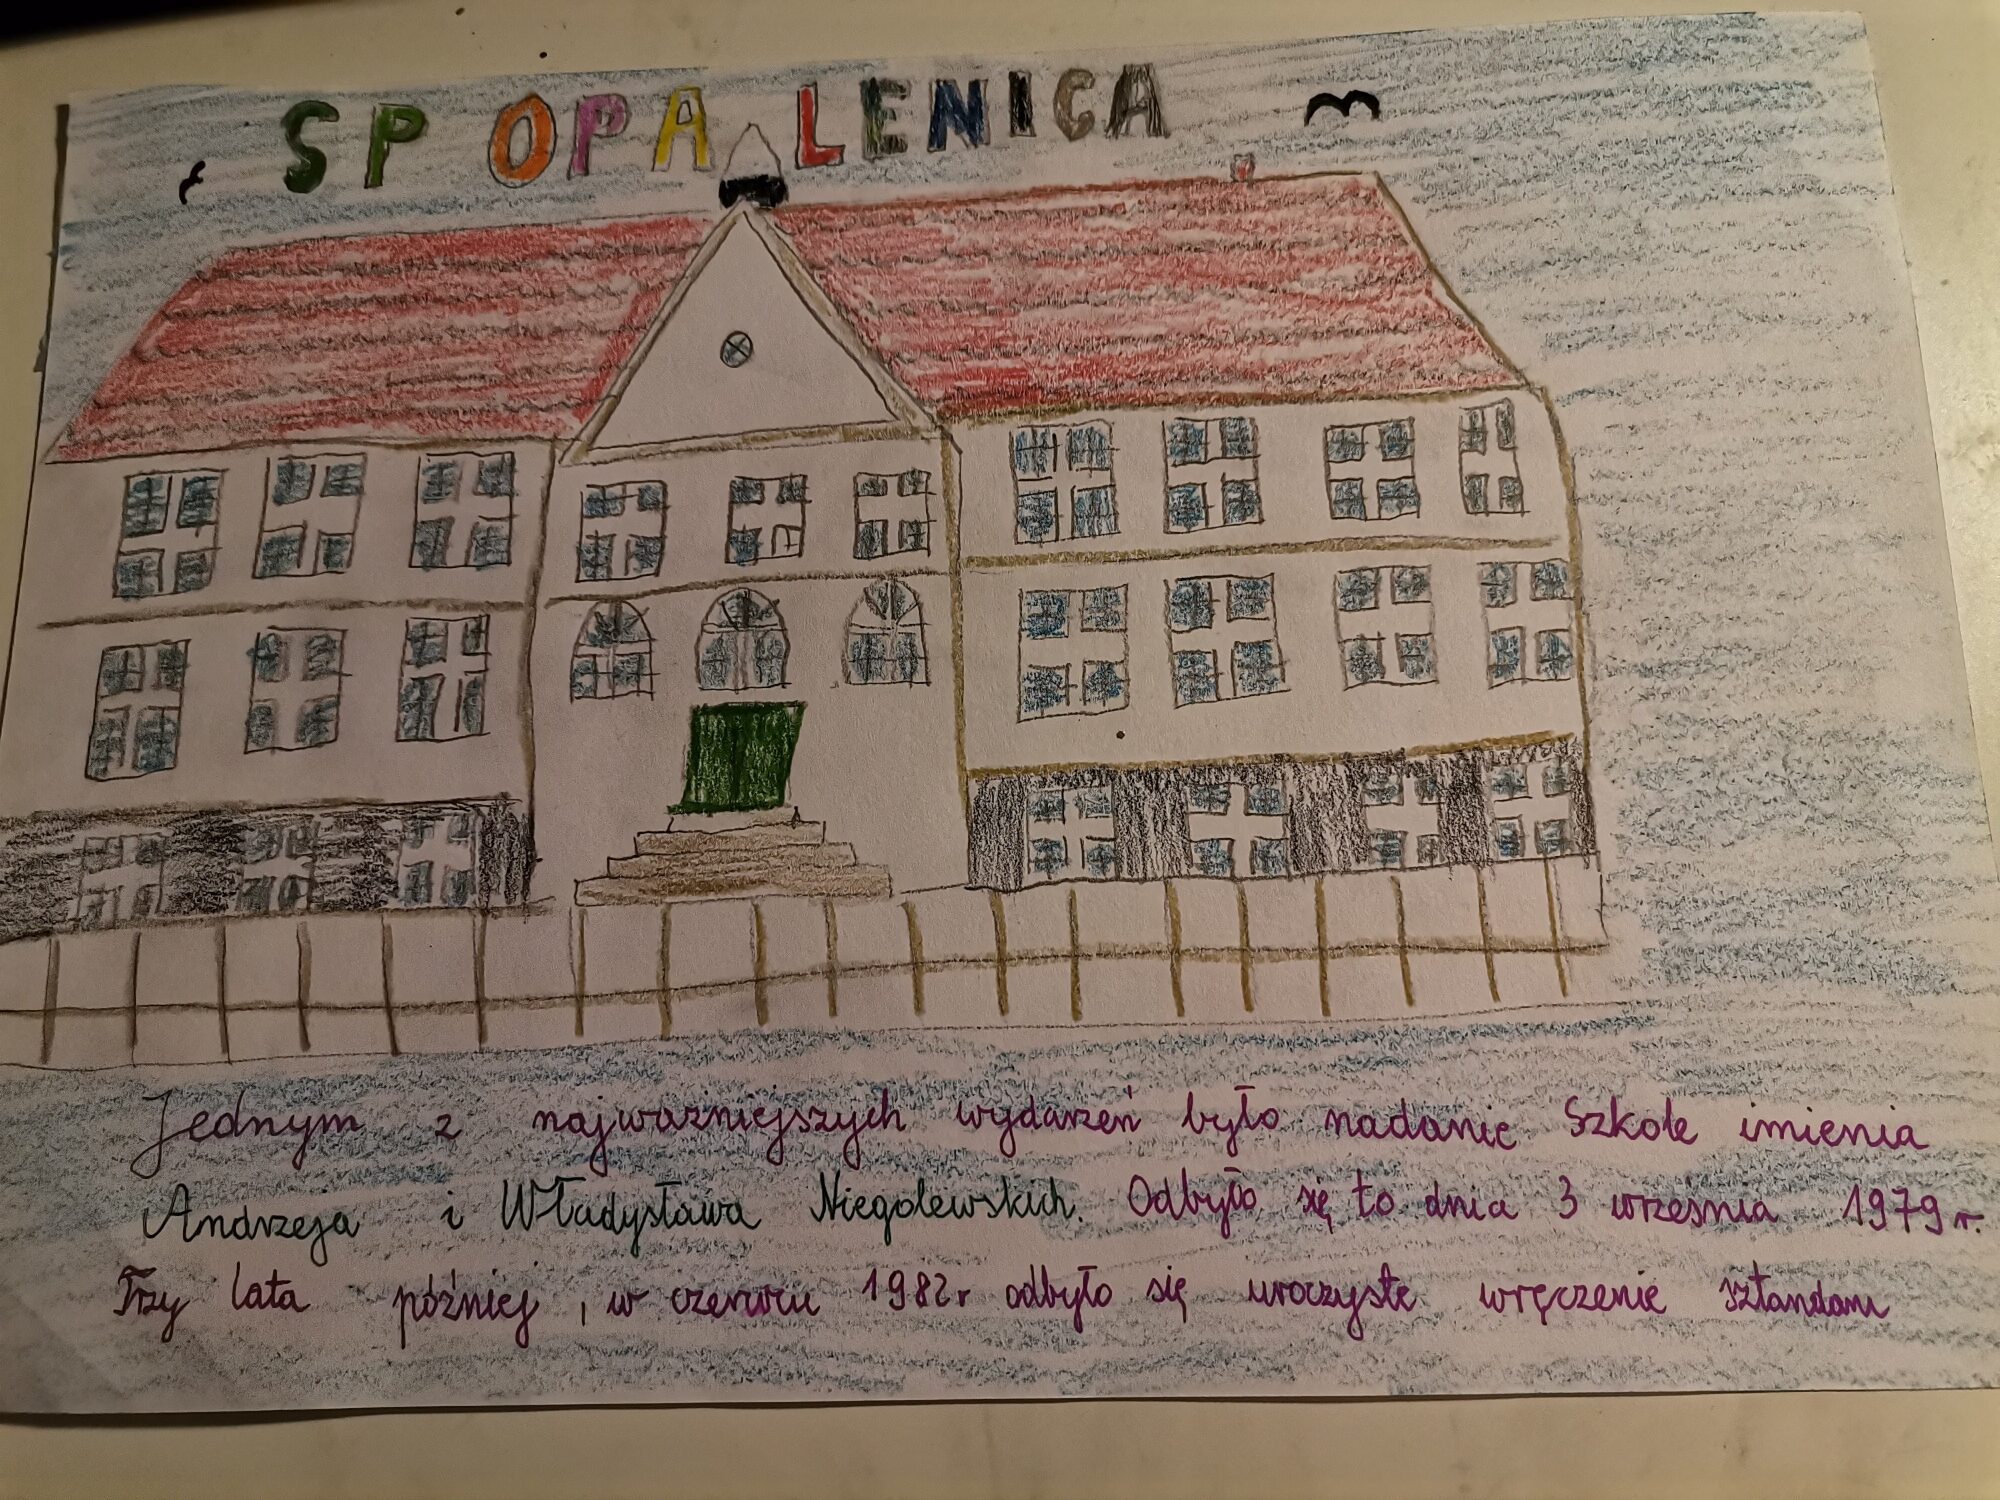 SP OPALENICA
Jednym z najważniejszych wydarzeń było nadanie Szkole imienia
Andrzeja i Władysława Niegolewskich. Odbyło się to dnia 3 września 1979 r.
Trzy lata później, w czerwcu 1982r odbyło się uroczyste wręczenie sztandaru